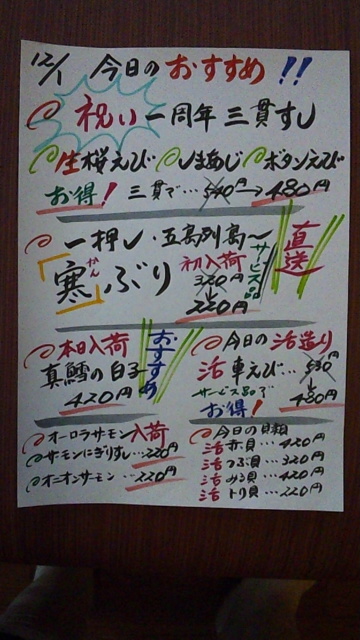 12/1 今日のおすすめ!!
祝い一周年三貫すし
生桜えび しまあじ ボタンえび
お得! 三貫で… →480円
一押し・五島列島～
直送
「寒ぶり
かん
初入荷
サービス品
320円
↓
220円
本日入荷
おすすめ
真鱈の白子
420円
今日の活造り
活車えび…
サービス品で ↓480円
お得!
オーロラサーモン入荷
サーモンにぎりすし…220円
オニオンサーモン…220円
今日の貝類
活赤貝…420円
活つぶ貝…320円
活みる貝…420円
活トリ貝…220円